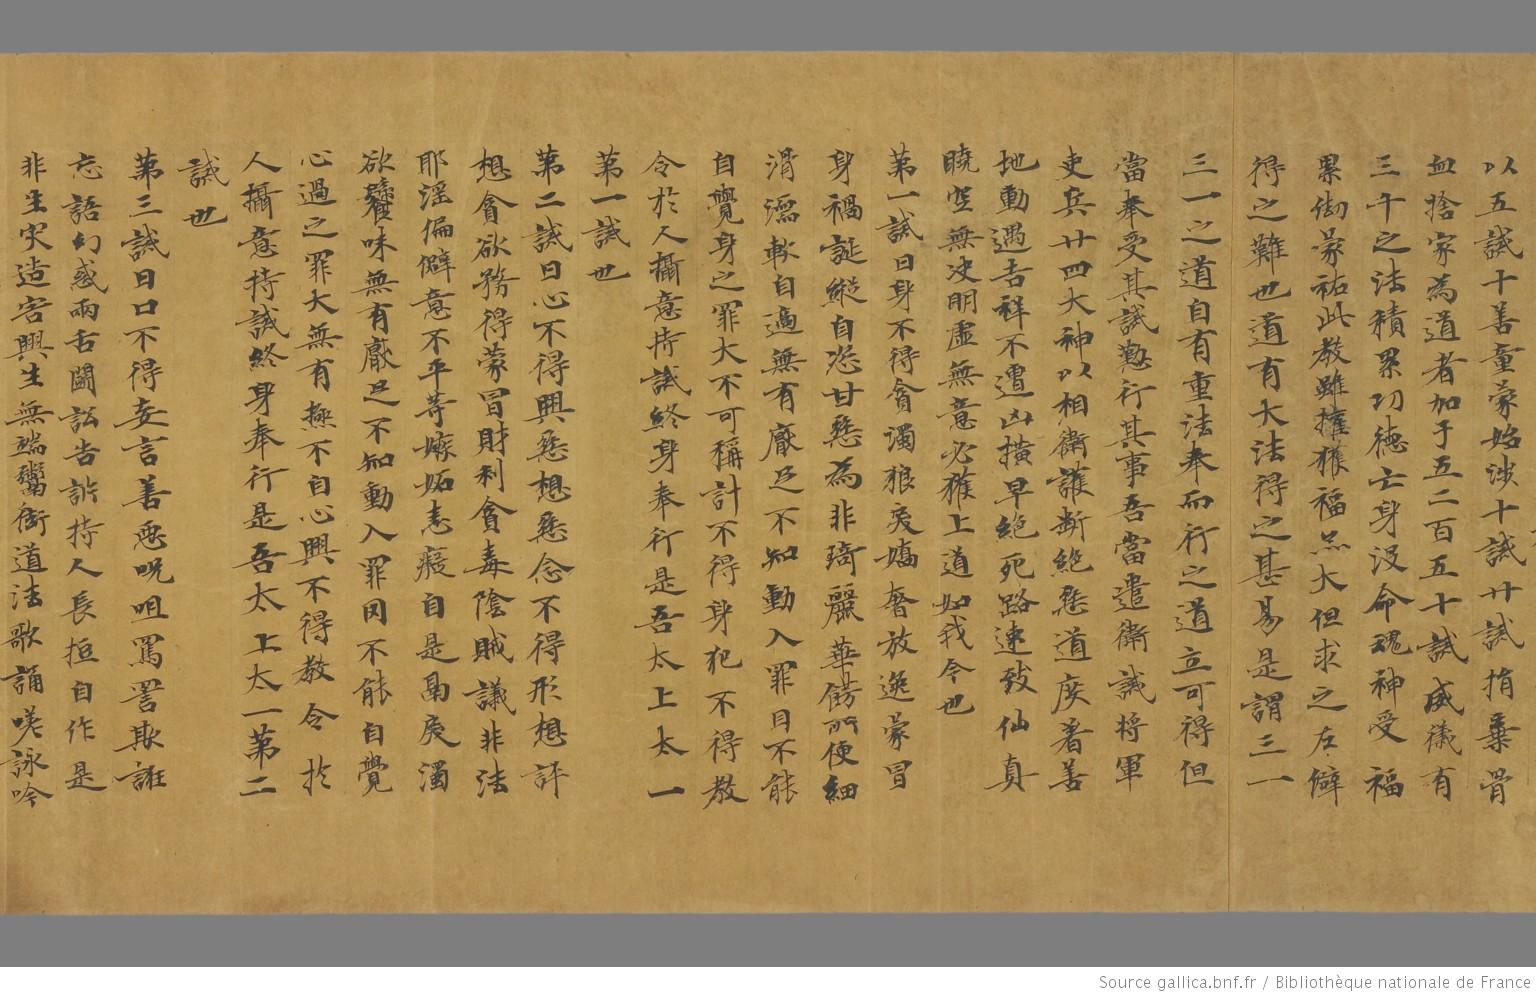 以五誡十善童蒙始涉十誡廿誡捐棄骨
血捨家為道者加于五二百五十誡威儀有
三千之法積累功德亡身沒命魂神受福
累劫蒙祐此教雖獲福大但求之左僻
得之難也道有大法得之甚易是謂三一
三一之道自有重法奉而行之道立可得但
當奉受其誡懃行其事吾當遣衛誡將軍
吏兵廿四大神以相衛護斷絕惡道度著善
地動遇吉祥不遭凶橫早絕死路速致仙真
曉空無決明虛無意必獲上道如我今也
第一誡曰身不得貪濁狼戾嬌奢放逸蒙冒
身禍誕縱自恣甘惡為非琦麗華使細
滑濡軟自適無有厭足不知動入罪目不能
自覺身之罪大不可稱計不得身犯不得教
令於人攝意持誡終身奉行是吾太上太一
第一誡也
第二誡曰心不得興惡想惡念不得形想評
想貪欲務得蒙冒財利貪毒陰賊議非法
耶淫偏僻意不平等嫉妬恚癡自是愚戾濁
欲味無有厭足不知動入罪罔不能自覺
心過之罪大無有極不自心興不得教令於
人攝意持誡終身奉行是吾太上太一第二
誡也
第三誡曰口不得妄言善惡呪咀罵詈欺誑
忘語幻惑兩舌鬪訟告訴持人長短自作是
非生災造害興生無端鬻衒道法歌誦嘆詠吟
Source gallica.bnf.fr / Bibliothèque nationale de France